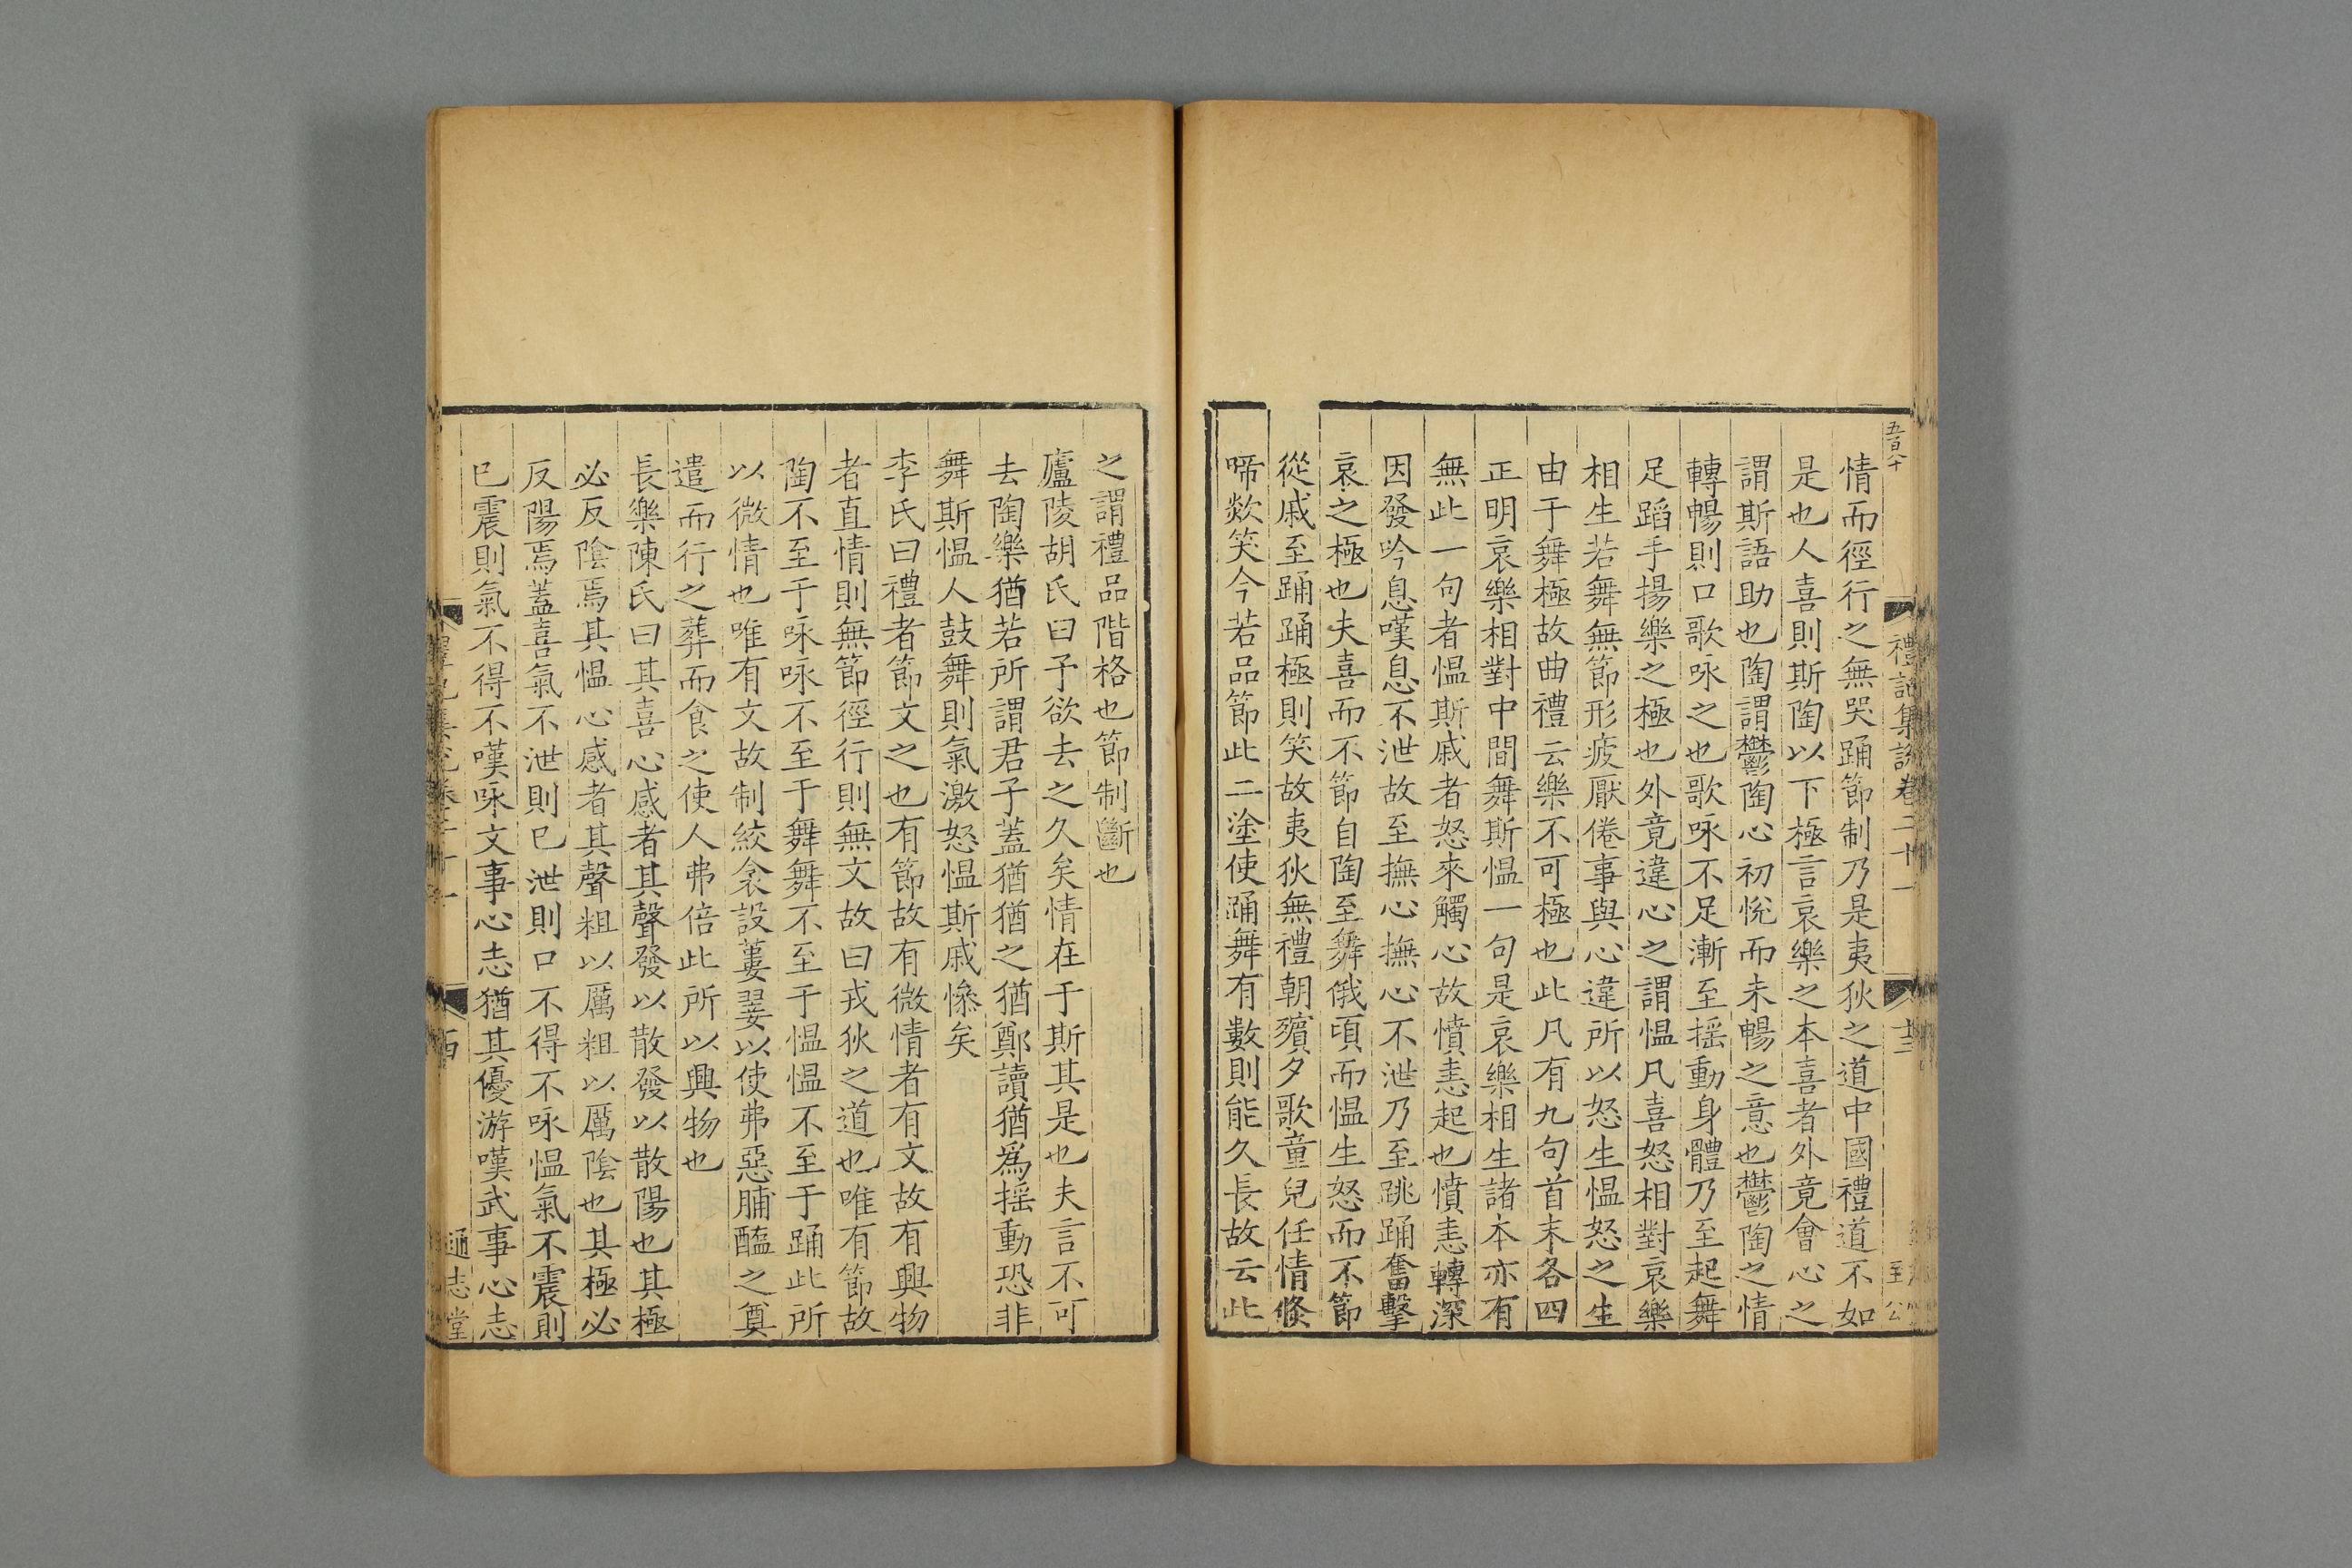 五百八十
禮記集說卷二十一
至公
情而徑行之無哭踊節制乃是夷狄之道中國禮道不如
是也人喜則斯陶以下極言哀樂之本喜者外竟會心之
謂斯語助也陶謂鬱陶心初悅而未暢之意也鬱陶之情
轉暢則口歌咏之也歌咏不足漸至揺動身體乃至起舞
足蹈手揚樂之極也外竟違心之謂慍凡喜怒相對哀樂
相生若舞無節形疲厭倦事與心違所以怒生慍怒之生
由于舞極故曲禮云樂不可極也此凡有九句首末各四
正明哀樂相對中間舞斯慍一句是哀樂相生諸本亦有
無此一句者慍斯戚者怒來觸心故憤恚起也憤恚轉深
因發吟息嘆息不泄故至撫心撫心不泄乃至跳踊奮擊
哀之極也夫喜而不節自陶至舞俄頃而慍生怒而不節
從戚至踊踊極則笑故夷狄無禮朝殯夕歌童兒任情倐
啼歘笑今若品節此二塗使踊舞有數則能久長故云此
之謂禮品階格也節制斷也
廬陵胡氏曰予欲去之久矣情在于斯其是也夫言不可
去陶樂猶若所謂君子蓋猶猶之猶鄭讀猶爲揺動恐非
舞斯慍人鼓舞則氣激怒慍斯戚慘矣
李氏曰禮者節文之也有節故有微情者有文故有興物
者直情則無節徑行則無文故曰戎狄之道也唯有節故
陶不至于咏咏不至于舞舞不至于慍慍不至于踊此所
以微情也唯有文故制絞衾設蔞翣以使弗惡脯醢之奠
遣而行之葬而食之使人弗倍此所以興物也
長樂陳氏曰其喜心感者其聲發以散發以散陽也其極
必反陰焉其慍心感者其聲粗以厲粗以厲陰也其極必
反陽焉蓋喜氣不泄則已泄則口不得不咏慍氣不震則
已震則氣不得不嘆咏文事心志猶其優游嘆武事心志
通志堂